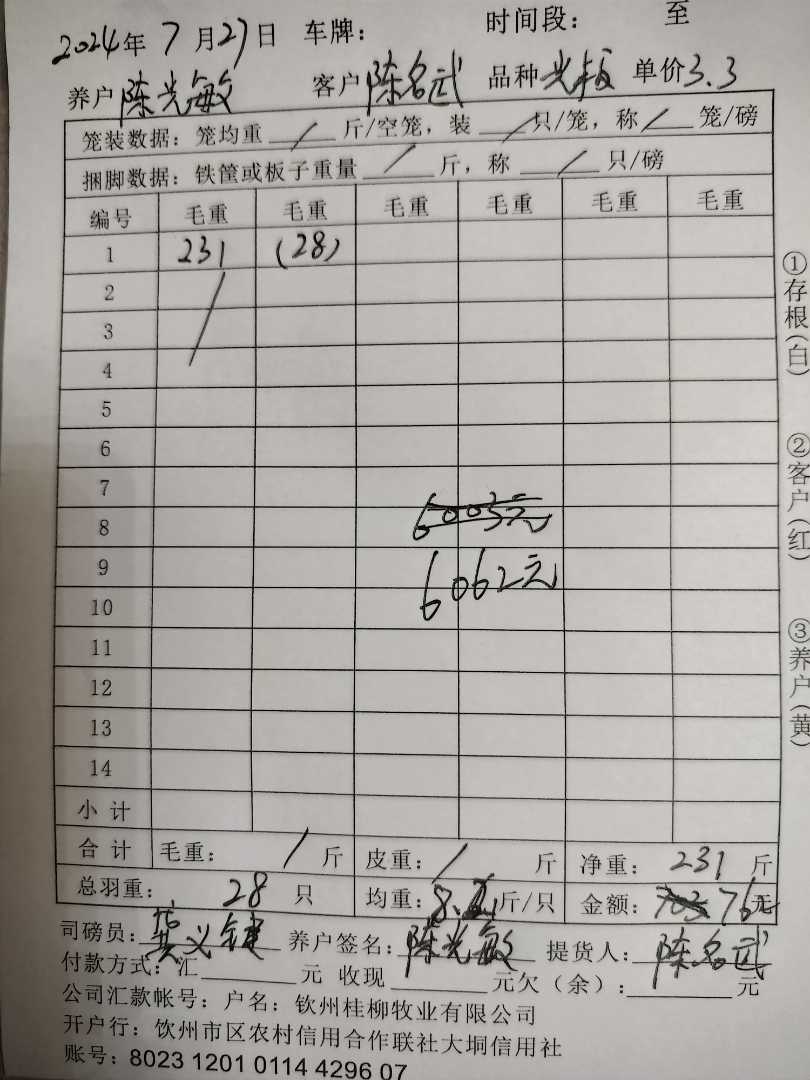 2024年7月27日 车牌： 时间段： 至
养户陈光敏 客户陈名武 品种光板 单价3.3
笼装数据：笼均重 / 斤/空笼，装 / 只/笼，称 / 笼/磅
捆脚数据：铁筐或板子重量 / 斤，称 / 只/磅
编号 毛重 毛重 毛重 毛重 毛重 毛重
1 231 (28)
2 /
3
4
5
6
7
8 6003元
9 6062元
10
11
12
13
14
小计
合计 毛重： / 斤 皮重： / 斤 净重：231斤
总羽重：28只 均重：8.斤/只 金额：763 76元
司磅员：龚义键 养户签名：陈光敏 提货人：陈名武
付款方式：汇 元 收现 元欠（余）： 元
公司汇款帐号：户名：钦州桂柳牧业有限公司
开户行：钦州市区农村信用合作联社大垌信用社
账号：8023 1201 0114 4296 07
①存根(白) ②客户(红) ③养户(黄)